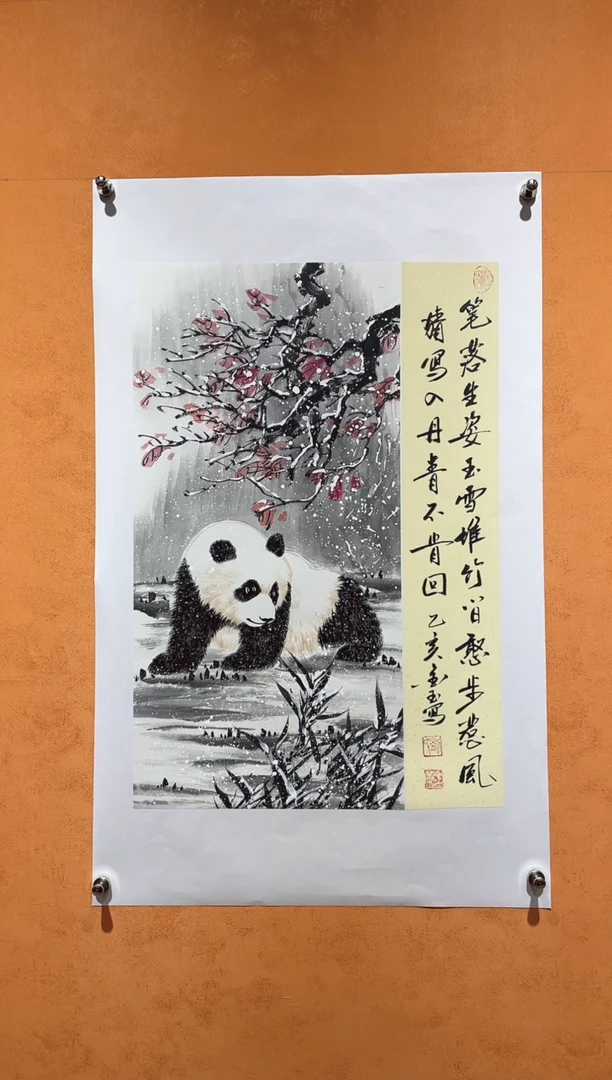 笔落生姿玉雪堆竹间憨步惹风
写入丹青不肯回 乙亥